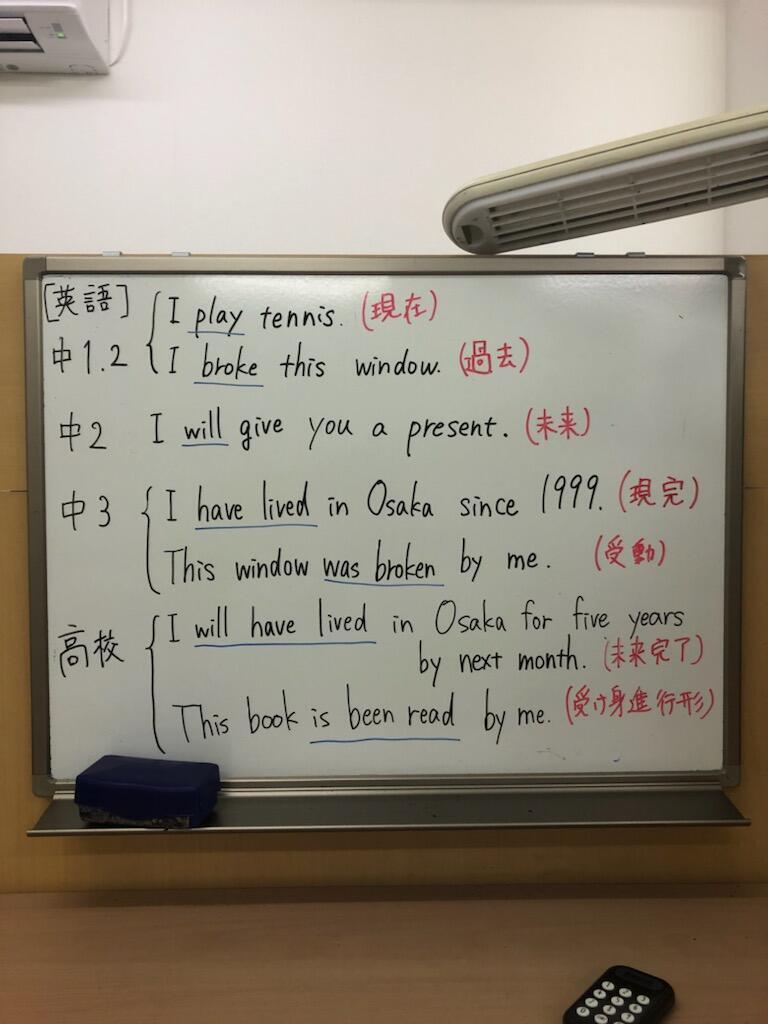 [英語]
中1.2 I play tennis. (現在)
I broke this window. (過去)
中2 I will give you a present. (未来)
中3 I have lived in Osaka since 1999. (現完)
This window was broken by me. (受動)
高校 I will have lived in Osaka for five years
by next month. (未来完了)
This book is been read by me. (受け身進行形)